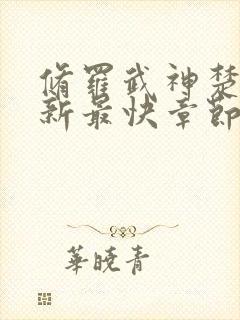 脩羅武神楚
新最快章節
華曉青